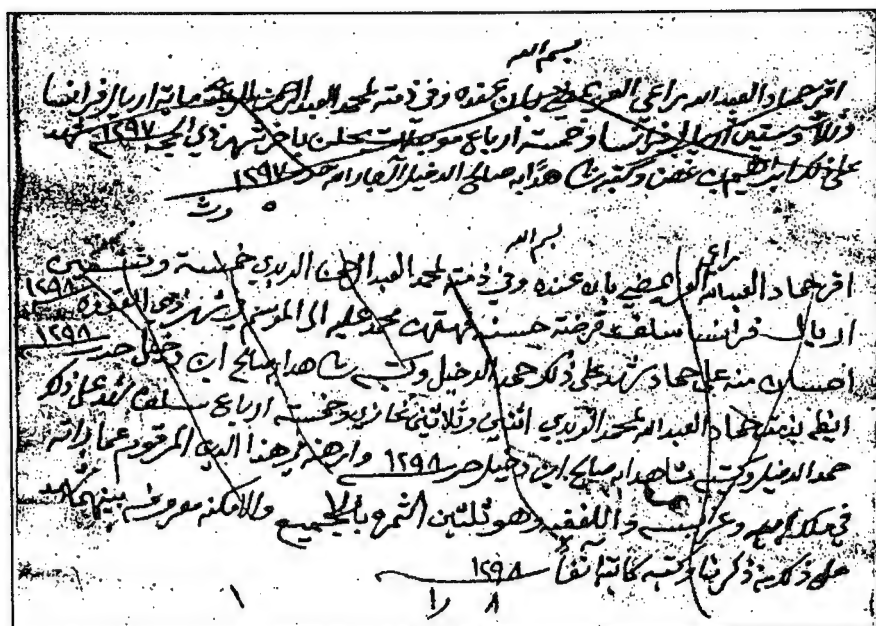 بسم الله
اقر حماد العبد الله راعي العريمضي بان عنده وفي ذمته لمحمد العبد الرحمن ماية اريال فرانسا
وثلاث وستين اريال فرانسا وخمسة ارباع مؤجلات يحلن باخر شهر ذي الحجة ١٢٩٧ شهد
على ذلك ابراهيم بن غصن وكتبه شاهدا به صالح الدخيل الجارالله حرر ١٢٩٧
بسم الله
اقر حماد العبدالله راعي العريمضي بان عنده وفي ذمته لمحمد العبد الرحمن الربدي خمسة وتسعين
اريال فرانسا سلف قرضة حسنة مهلهن محمد عليه الى الموسم في شهر ذي القعدة ١٢٩٨
احسان منه على حماد شهد على ذلك حمد الدخيل وكتبه شاهدا به صالح ابن دخيل حرر ١٢٩٨
ايضا بذمة حماد العبدالله لمحمد الربدي اثنين وثلاثين وخمسة ارباع سلف شهد على ذلك
حمد الدخيل وكتبه شاهد به صالح ابن دخيل حرر ١٢٩٨ وارهنه بهذا الدين المرقوم عماراته
في ملك وهو ثلثين الثمرة بالجميع والامكنة معروفة بينهم شهد
على ذلك من ذكرنا وكتبه كاتبه آنفاً ١٢٩٨
١ ٨ را